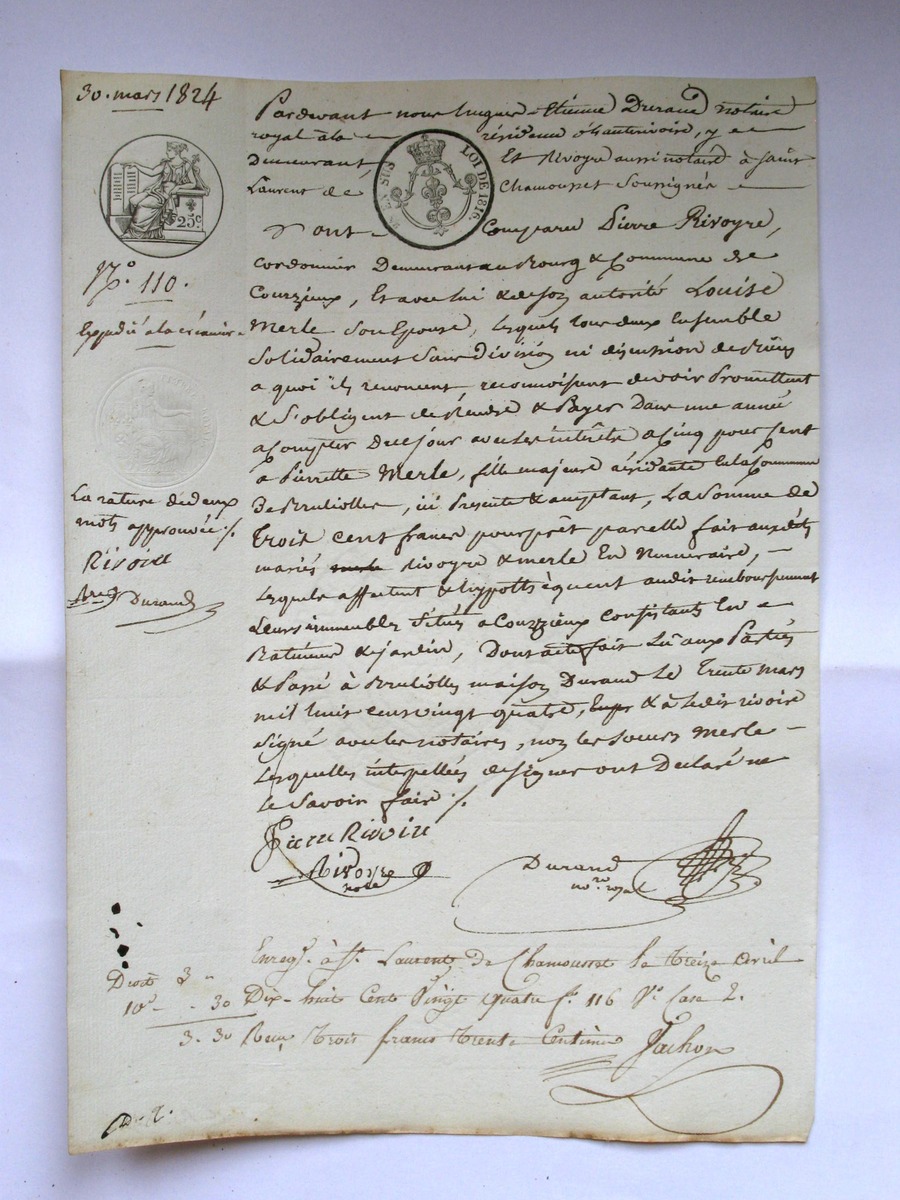 30. mars 1824
Pardevant nous hugues Etienne Durand notaire
royal à la résidence d'hauterivoire, y
Demeurant Et Rivoyre aussi notaire à saint
Laurent de Chamousset Soussignés
25c.
EN SUS LOI DE 1816
ont Comparu Pierre Rivoyre,
N.o 110.
cordonnier Demeurant au Bourg & Commune de
Courzieux, Et avec lui & de son autorité Louise
Expédié à la créancière
Merle Son Epouse, lesquels tous deux Ensemble
Solidairement Sans Division ni discussion de Biens
a quoi ils renoncent, reconnoissent devoir Promettent
& S'obligent de Rendre & Payer Dans une année
a Compter De ce jour avec les intérêts a Cinq pour Cent
a Pierrette Merle, fille majeure résidante En la Commune
De Brullioles, ici Presente & acceptant, La Somme de
La rature de deux
mots approuvée ./.
Trois Cent francs pour prêt par elle fait auxdits
Rivoire
mariés merle rivoyre & merle En Numeraire,
Durand
Lesquels affectent & hyppothèquent audit remboursement
Leurs immeubles Situés a Courzieux Consistants En
Batiment & jardin, Dont acte fait Lû aux Parties
& Passé à Brullioles maison Durand Le Trente Mars
mil huit cent vingt quatre, & à Ledit rivoire
Signé avec les notaires, non les Soeurs Merle
Lesquelles interpellées de signer ont Déclaré ne
Le Savoir faire ./.
Pierre Rivoire
Rivoyre
note
Durand
no.re royal
Enreg. à St. Laurent de Chamousset le Treize Avril
Droit 3 "
Dix-huit Cent Vingt quatre f.o 116 V.o Case 2.
10e - 30
3. 30 Reçu Trois francs Trente Centimes